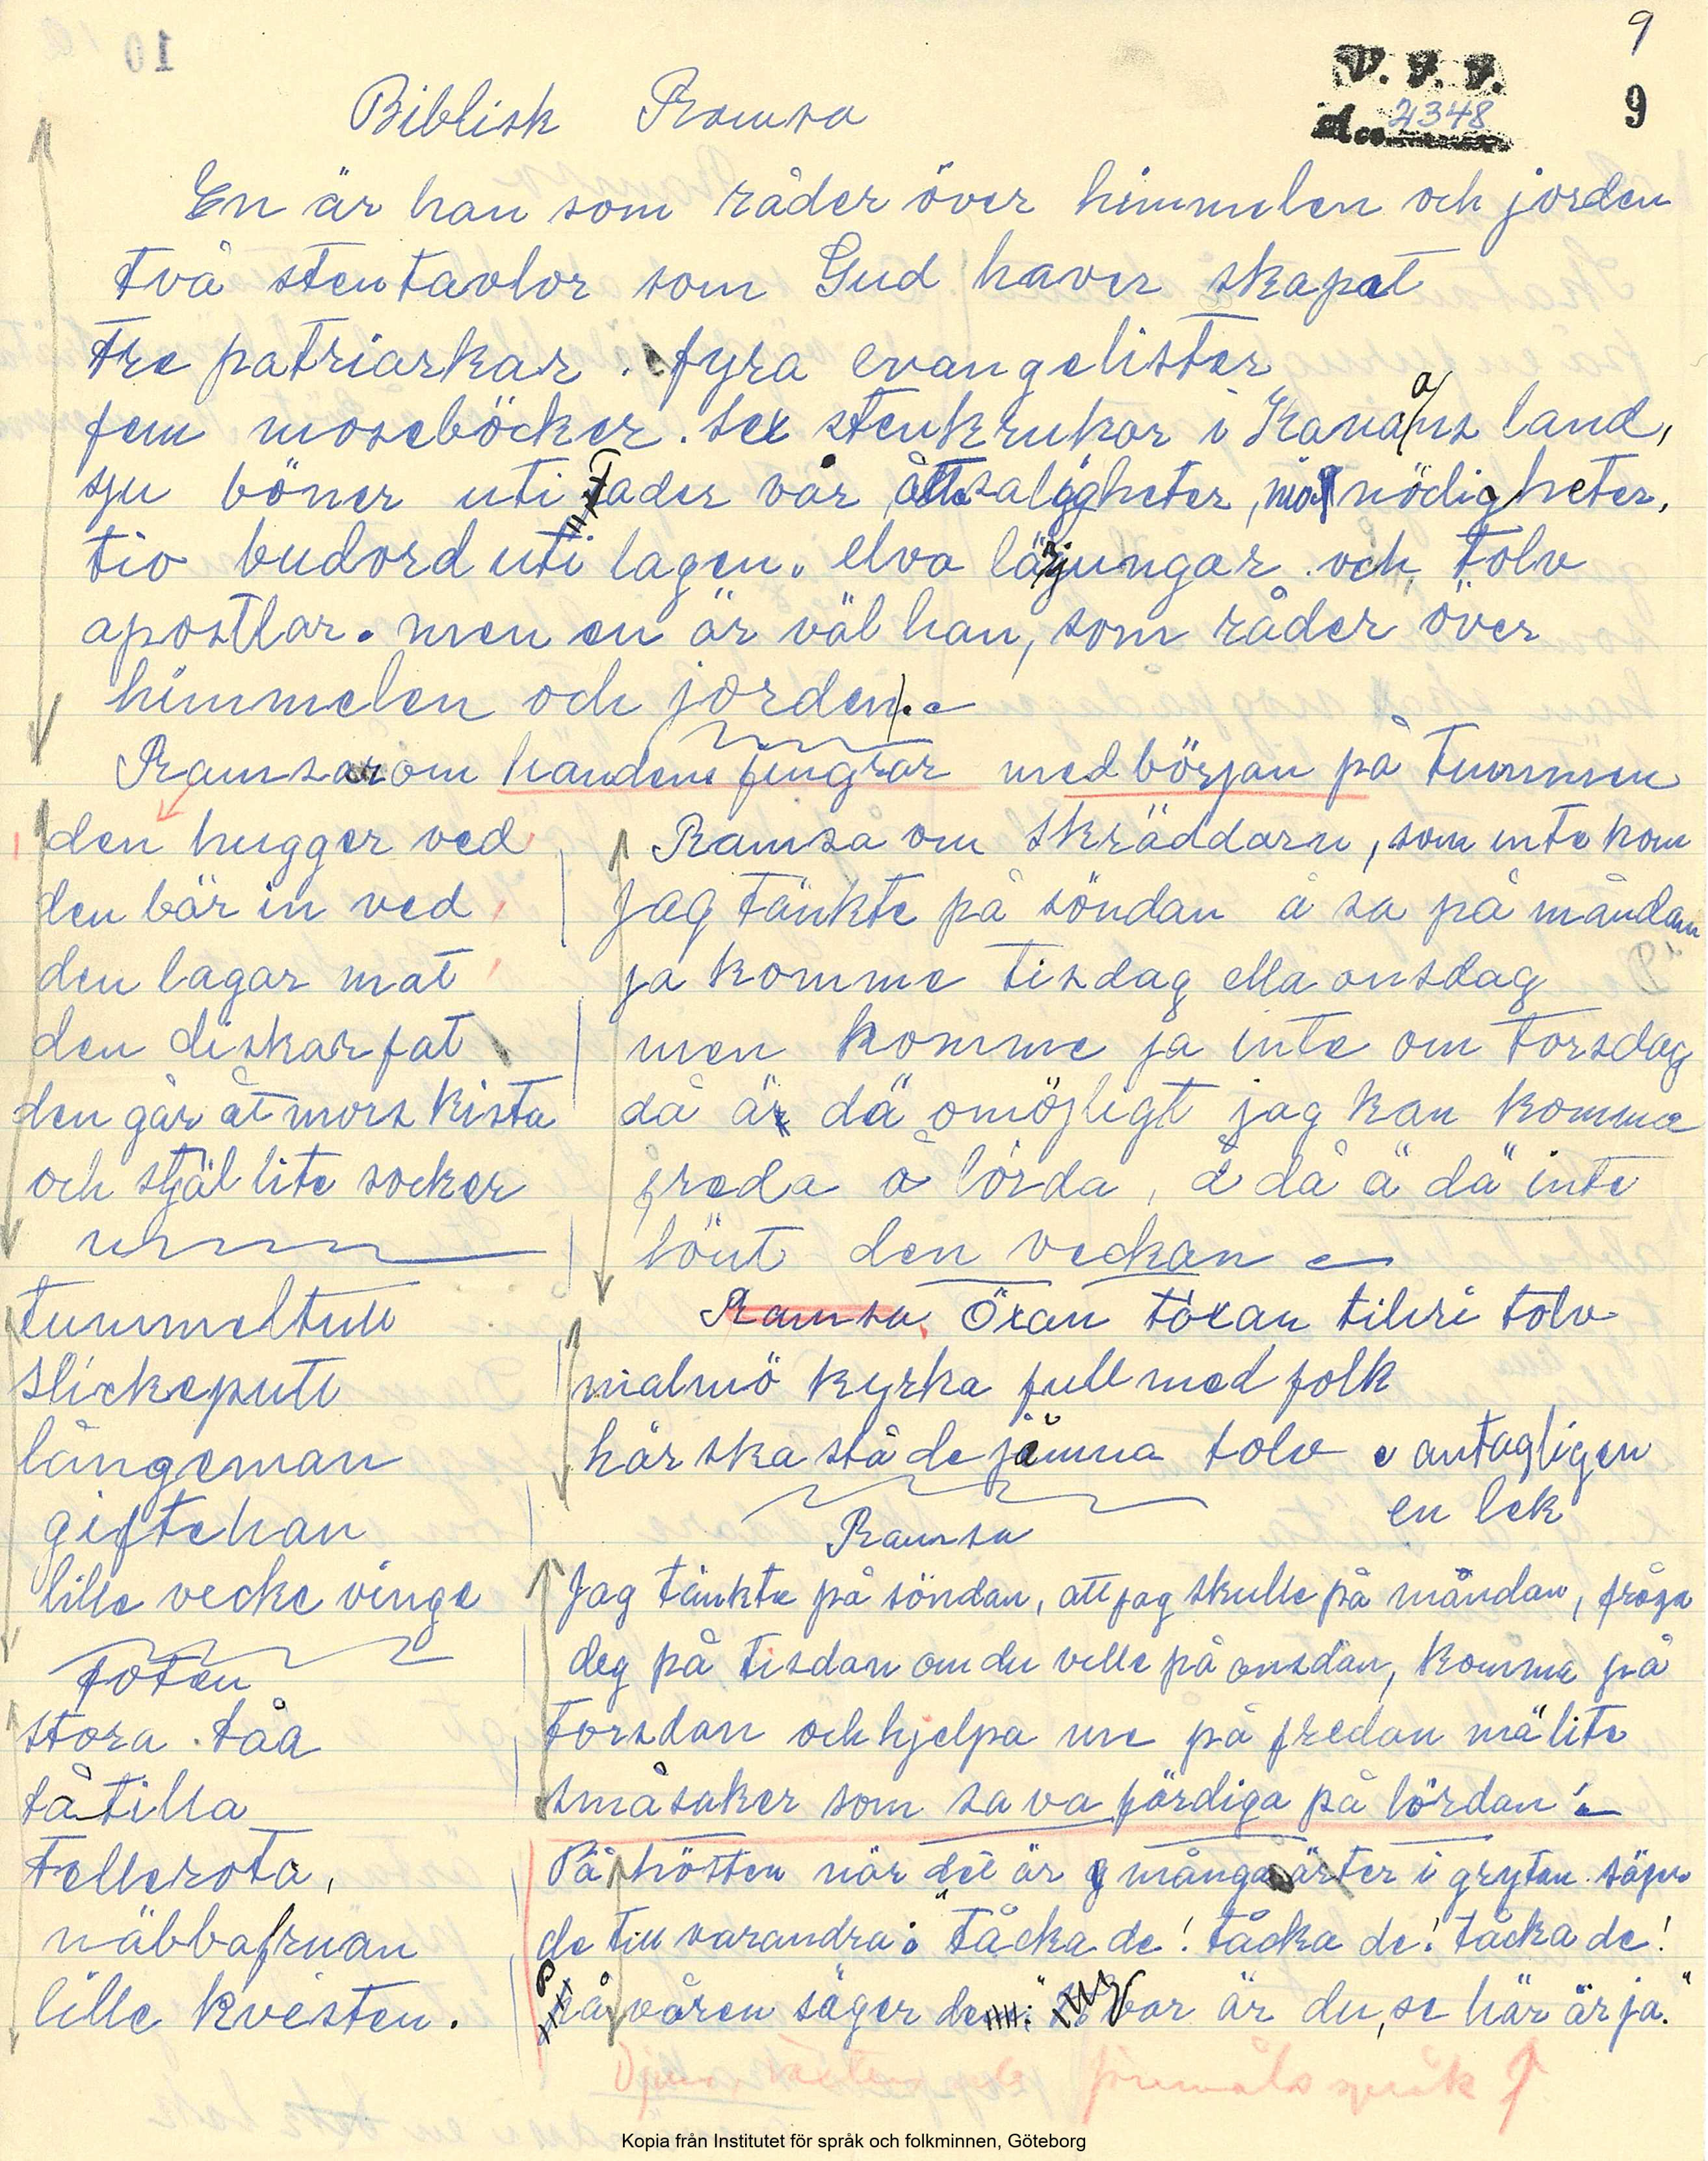 9
V. F. F.
Acc. 2348
9
Biblisk Ramsa
En är han som råder över himmelen och jorden
två stentavlor som Gud haver skapat
tre patriarkar. fyra evangelister
fem moseböcker. sex stenkrukor i Kanaans land,
sju böner uti Fader vår, åtta saligheter, nio nödigheter,
tio budord uti lagen. elva lärjungar och tolv
apostlar. men en är väl han, som råder över
himmelen och jorden.
Ramsor om handens fingrar med början på tummen
den hugger ved
den bär in ved
den lagar mat
den diskar fat
den går åt mors kista
och stjäl lite socker
tummeltutt
slickeputt
långeman
giftehan
lille vecke vinge
foten
stora tåa
tåtilla
tellerota,
näbbafruan
lille kvisten.
Ramsa om skräddarn, som inte kom
Jag tänkte på söndan å sa på måndan
ja komme tisdag ella onsdag
men komme ja inte om torsdag
då är dä omöjligt jag kan komma
freda å lörda, å då ä dä inte
lönt den veckan
Ramsa. Öxan töxan tilvri tolv
malmö kyrka full med folk
här ska stå de jämna tolv antagligen
en lek
Ramsa
Jag tänkte på söndan, att jag skulle på måndan, fråga
deg på tisdan om du ville på onsdan, komma på
torsdan och hjelpa me på fredan mä lite
småsaker som sa va färdiga på lördan!
På hösten när det är många ärter i grytan säger
de till varandra: "täcka de! täcka de! täcka de!
På våren säger de: "Var är du, se här är ja."
föremåls språk
Kopia från Institutet för språk och folkminnen, Göteborg